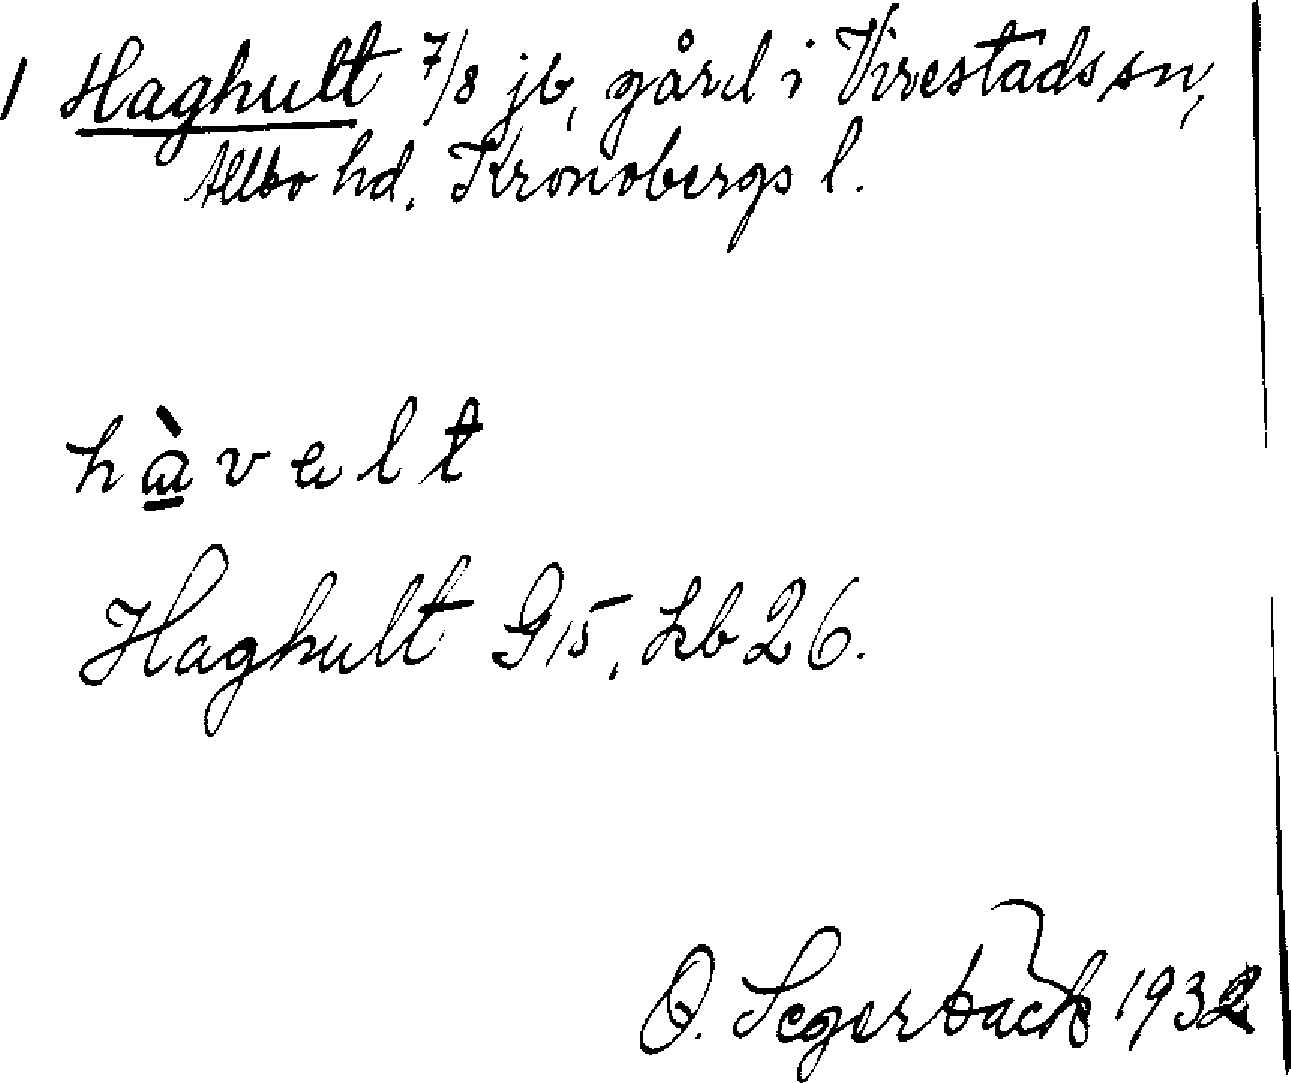 1 Haghult 7/8 jb, gård i Virestads sn,
Allbo hd. Kronobergs l.
hàvelt
Haghult G15, hb 26.
O. Segerback 1932